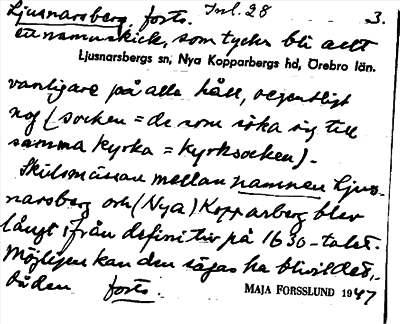 Ljusnarsberg, forts. Inl. 28 3.
ett namnskick, som tycks bli allt
Ljusnarsbergs sn, Nya Kopparbergs hd, Örebro län.
vanligare på alla håll, egentligt
nog (socken = de som söka sig till
samma kyrka = kyrksocken).
Skilsmässan mellan namnen Ljus-
narsberg och (Nya) Kopparberg blev
långt ifrån definitiv på 1630-talet.
Möjligen kan den sägas ha blivit det,
då den forts.
MAJA FORSSLUND 1947